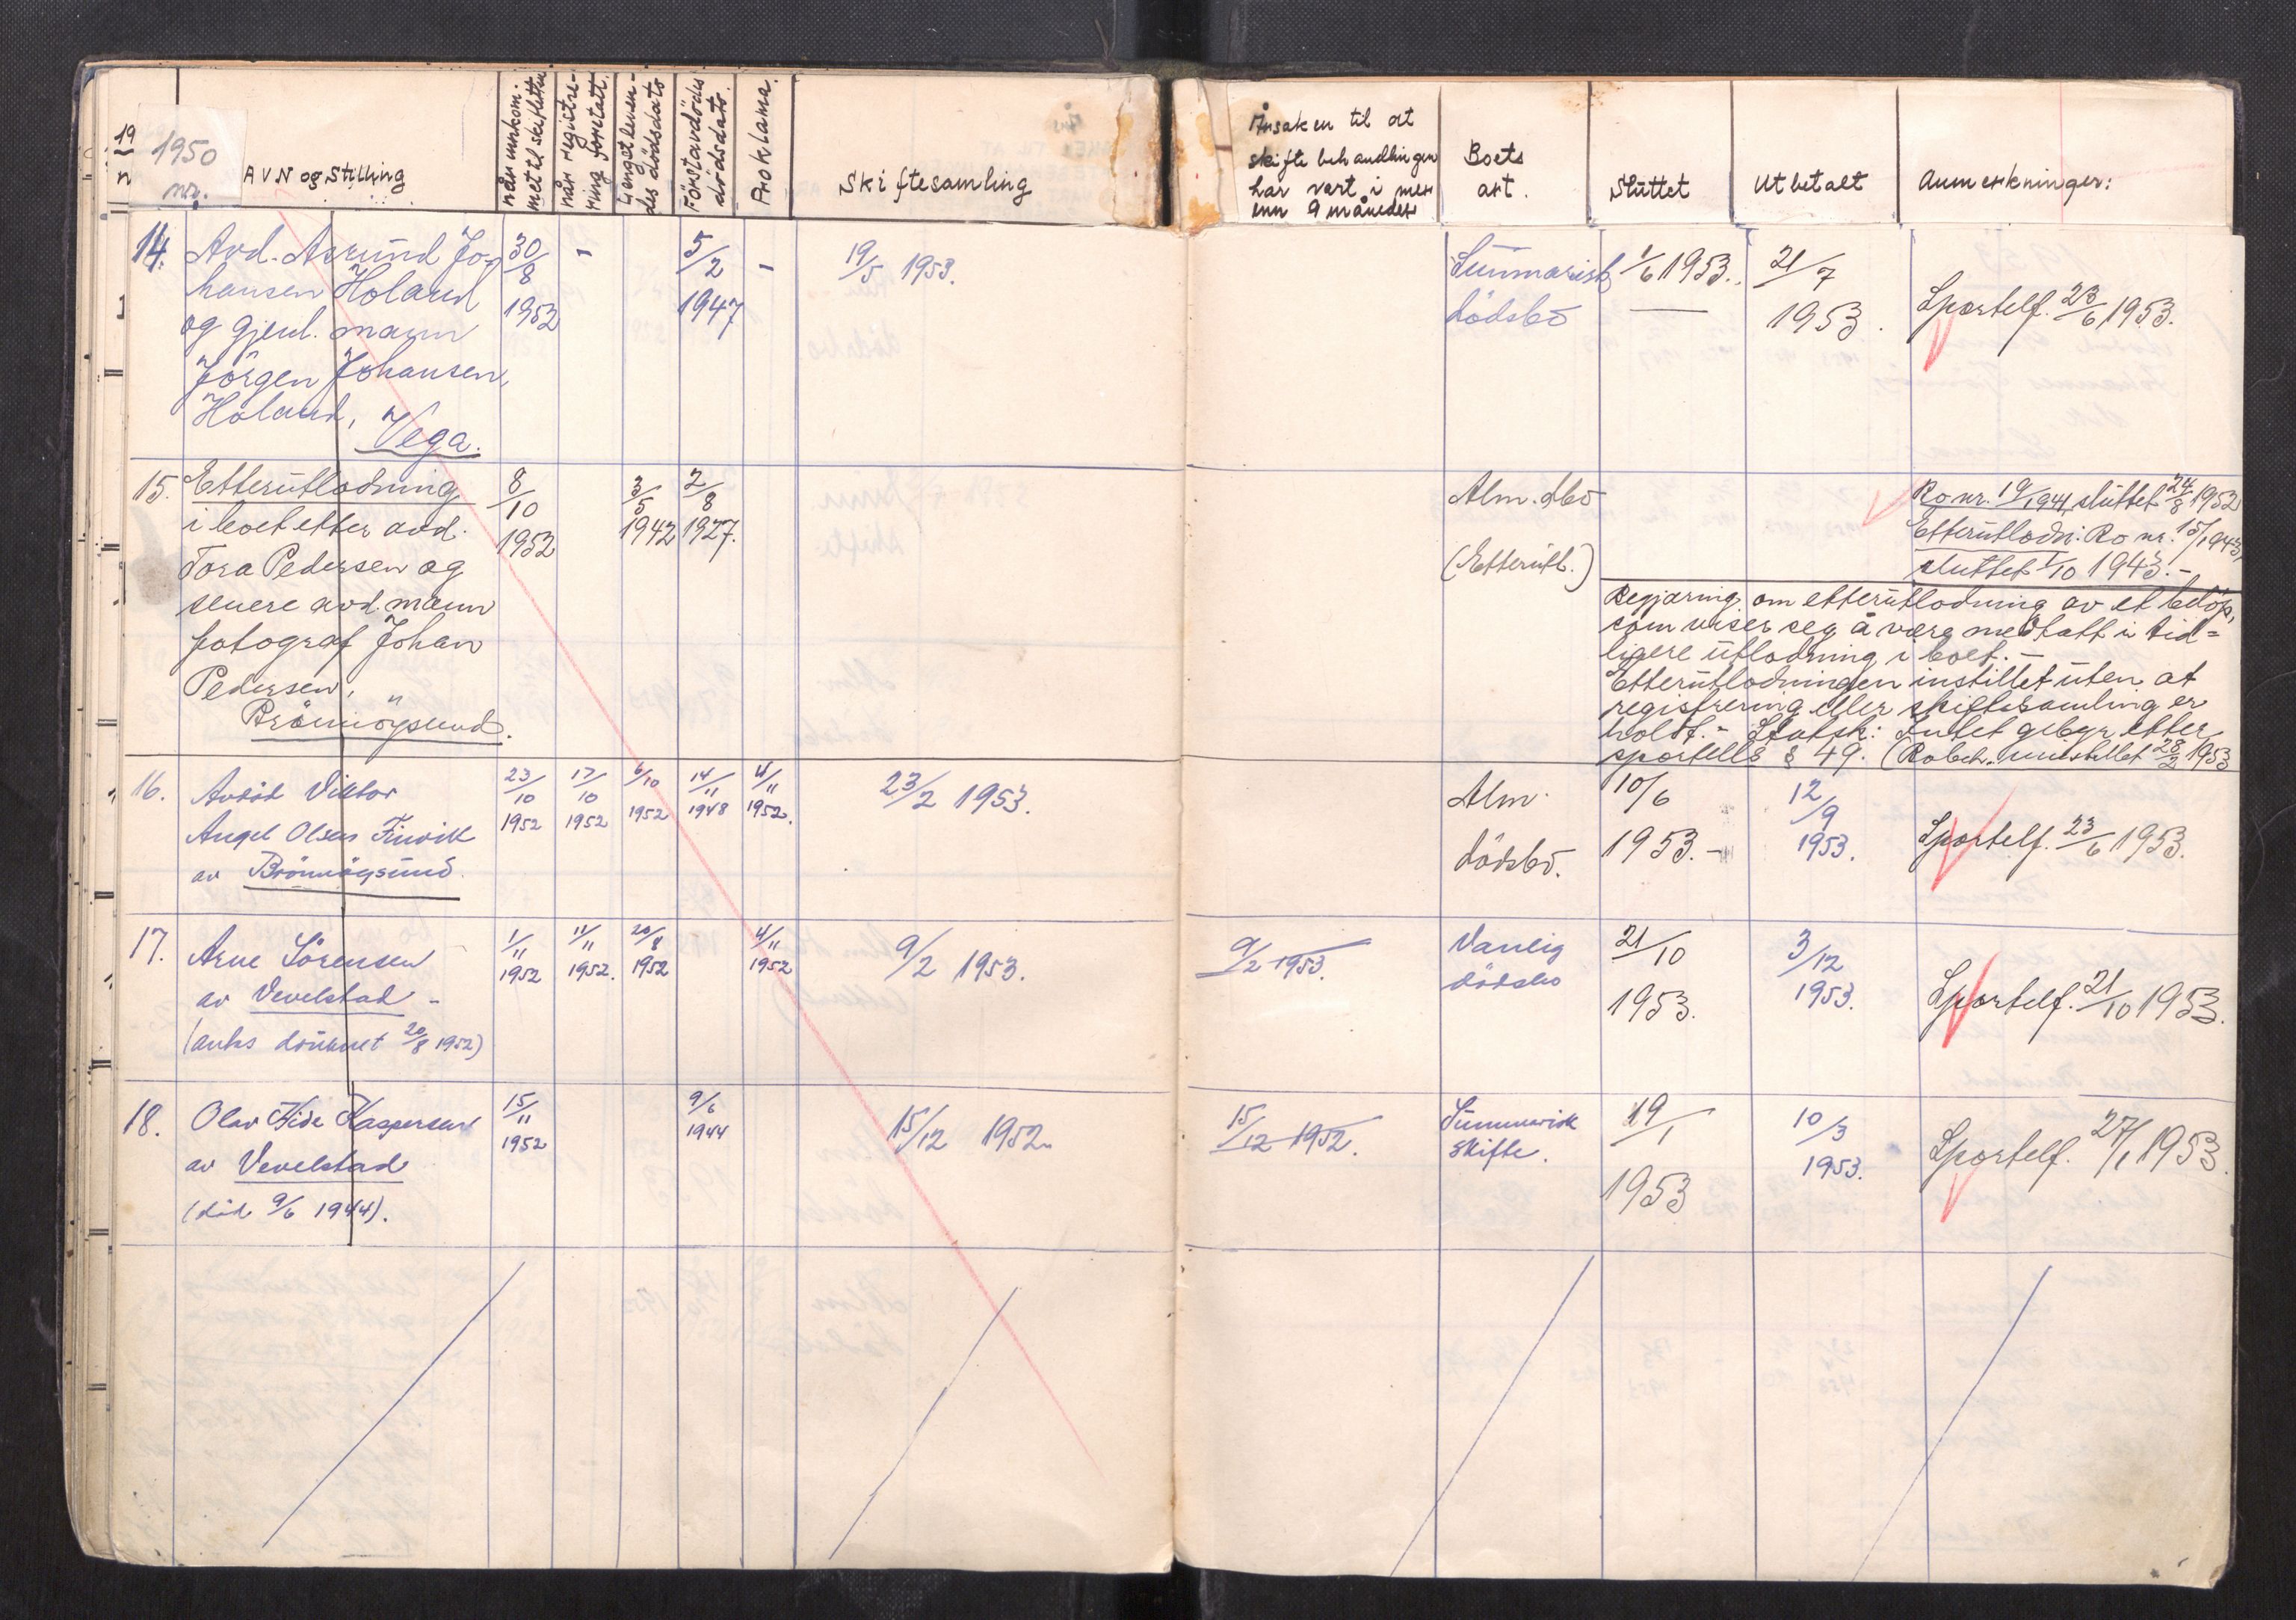 19
n
1950
nr.
AVN og Stilling
når innkom-
met til skifteretten
når registre-
ring foretatt.
Lengstleven-
des dödsdato
Förstavdödes
dödsdato.
Proklama.
Skiftesamling
Årsaken til at
skifte behandlingen
har vart i mer
enn 9 måneder
Boets
art.
Sluttet
Utbetalt
Anmerkninger:
14.
Avd. Asrund Jo-
hansen Holand
og gjenl. mann
Jörgen Johansen,
Holand,
Vega.
30/8
1952
-
5/2
1947
-
19/5 1953.
Summarisk
dödsbo
1/6 1953.
—
21/7
1953.
Sportelf. 23/6 1953.
15.
Etterutlodning
i boet etter avd.
Tora Pedersen og
senere avd. mann
fotograf Johan
Pedersen,
Brönnöysund.
8/10
1952
3/5
1942
2/8
1927.
Alm. dbo
(Etterutl.)
Bo nr. 19/1941, sluttet 24/8 1952
Etterutlodn: Bo nr. 15/1943,
sluttet 1/10 1943.-
Begjæring om etterutlodning av et belöp,
som viser seg å være medtatt i tid=
ligere utlodning i boet.-
Etterutlodningen instillet uten at
registrering eller skiftesamling er
holdt.- Statsk: Intet gebyr etter
sportells § 49. (Bobeh. innstillet 28/2 1953
16.
Avdöd Viktor
Angel Olsen Finvik
av Brönnöysund.
23/10
1952
17/10
1952
6/10
1952
14/11
1948
4/11
1952.
23/2 1953.
Alm.
dödsbo.
10/6
1953.-
12/9
1953.
Sportelf. 23/6 1953.
17.
Arne Sörensen
av Vevelstad -
(antas druknet 20/8 1952)
1/11
1952
11/11
1952.
20/8
1952
4/11
1952
9/2 1953.
9/2 1953.
Vanlig
dödsbo
21/10
1953.
3/12
1953.
Sportelf. 21/10 1953.
18.
Olav Hide Kaspersen
av Vevelstad
(död 9/6 1944).
15/11
1952
9/6
1944
15/12 1952.
15/12 1952.
Summarisk
skifte.
19/1
1953
10/3
1953.
Sportelf. 27/1 1953.